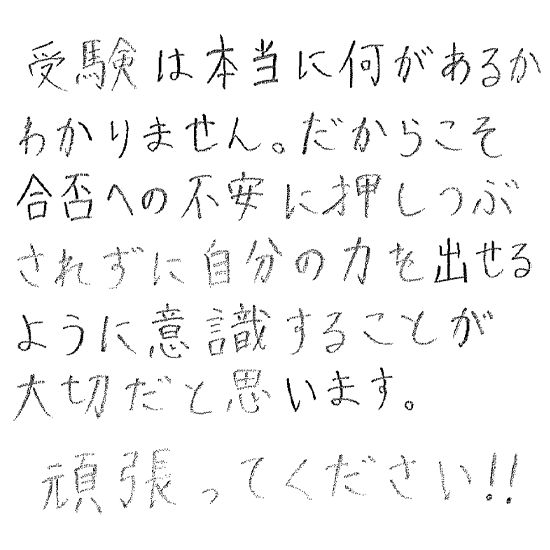 受験は本当に何があるか
わかりません。だからこそ
合否への不安に押しつぶ
されずに自分の力を出せる
ように意識することが
大切だと思います。
頑張ってください!!